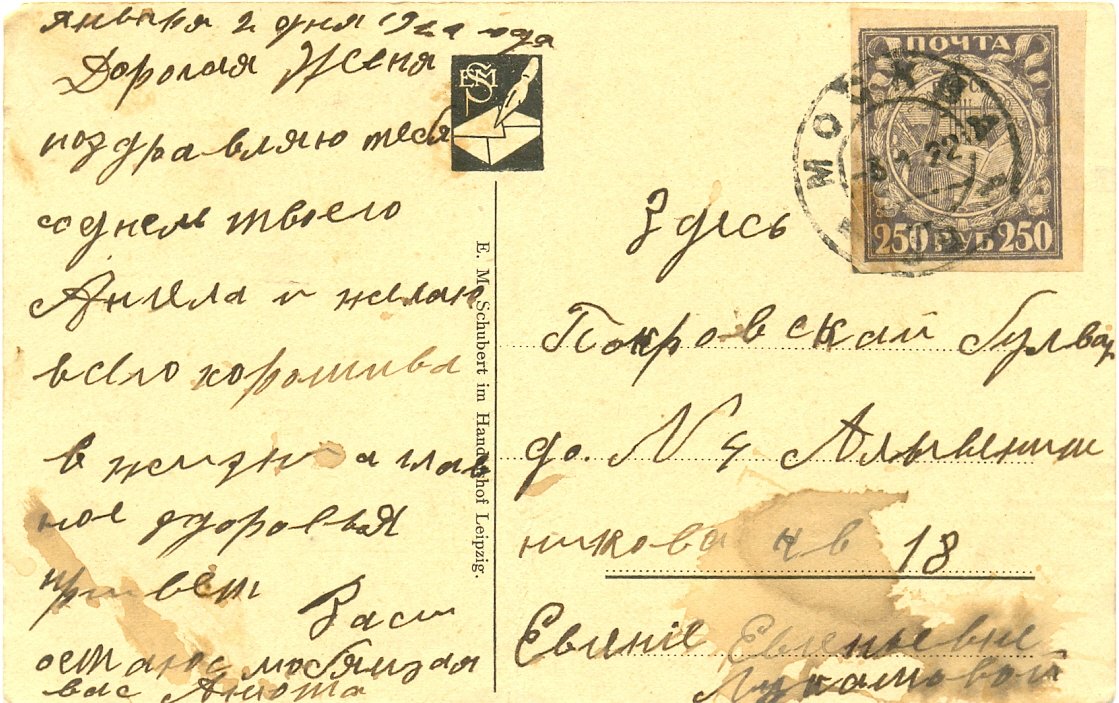 января 2 дня 1922 года
Дорогая Женя
поздравляю тебя
соднем твоего
Ангела и желаю
всего хорошива
в жизни а глав
ное здоровья
привет
остаюс любящая
вас Анюта
ESM
E. M. Schubert im Handelshof Leipzig.
ПОЧТА
250 РУБ 250
МОСКВА
22
Здесь
Покровский булвар
до. N 4
никова кв 18
Евгеніе Евгеньевне